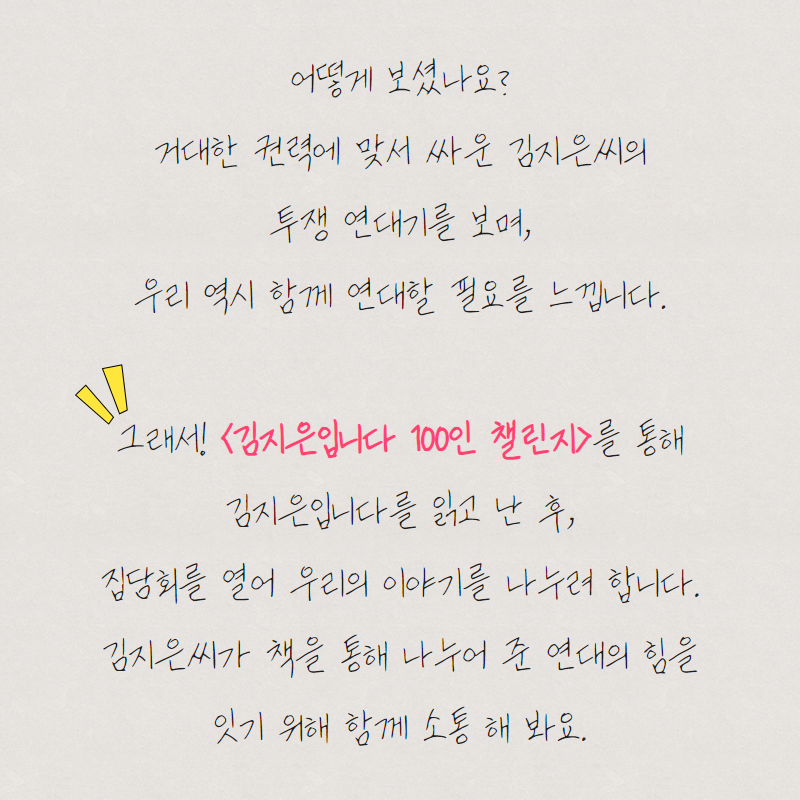 어떻게 보셨나요?
거대한 권력에 맞서 싸운 김지은씨의
투쟁 연대기를 보며,
우리 역시 함께 연대할 필요를 느낍니다.
그래서! <김지은입니다 100인 챌린지>를 통해
김지은입니다를 읽고 난 후,
집담회를 열어 우리의 이야기를 나누려 합니다.
김지은씨가 책을 통해 나누어 준 연대의 힘을
잇기 위해 함께 소통 해 봐요.